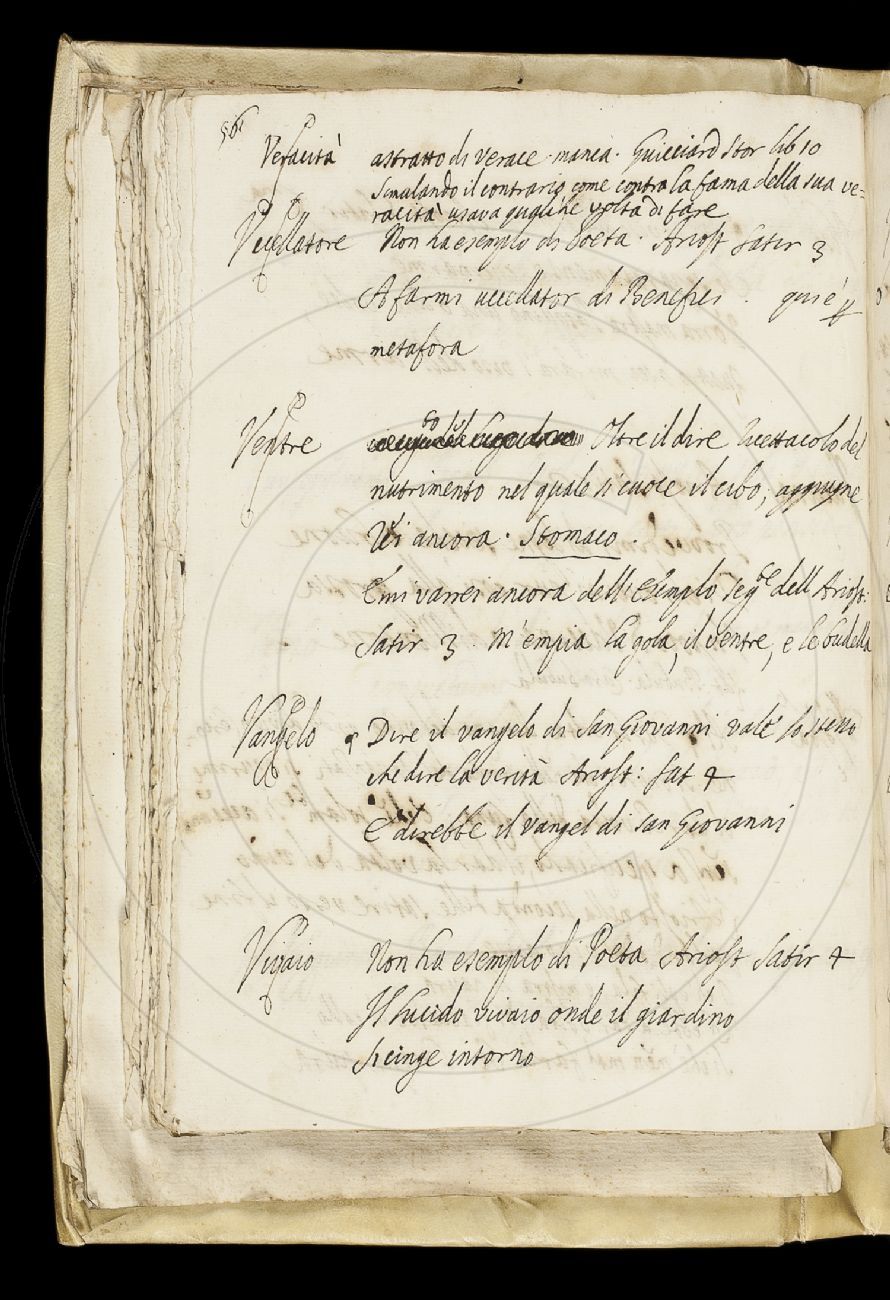 561
Veracità astratto di verace manca. Guicciard Stor lib 10
Simulando il contrario come contra la fama della sua ve=
racità usava qualche volta di fare
Vccellatore Non ha esempio di Poeta. Ariost Satir 3
A farmi uccellator di Benefizi. qui é p
metafora
Ventre Oltre il dire Ricettacolo del
nutrimento nel quale si cuoce il cibo, aggiugne
Rei ancora. Stomaco.
E mi varrei ancora dell' Esemplo seg.te dell Ariost:
Satir 3 M'empia la gola, il ventre, e le budella
Vangelo Dire il vangelo di San Giovanni vale lo stesso
che dire la verità Ariost: Sat 4
E direbbe il vangel di san Giovanni
Vivaio Non ha esemplo di Poeta Ariost Satir 4
Il lucido vivaio onde il giardino
si cinge intorno